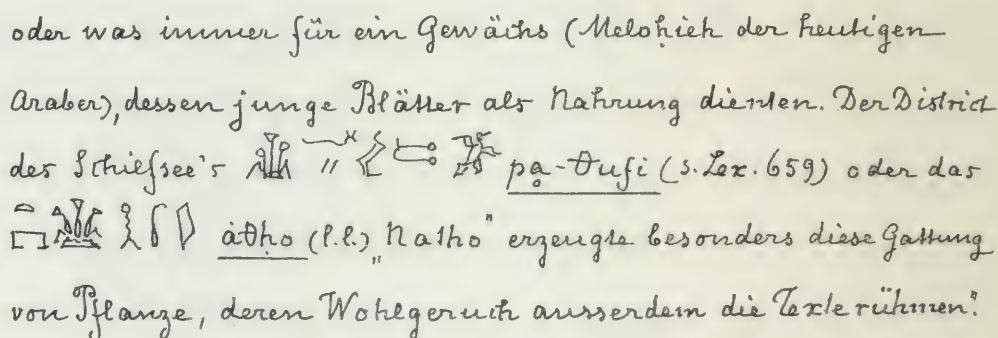 oder was immer für ein Gewächs (Meloḥieh der heutigen
Araber), dessen junge Blätter als Nahrung dienten. Der District
des Schilfsee's pa-θufi (s. Lex. 659) oder das
àθḥo (l.l.) „Natho" erzeugte besonders diese Gattung
von Pflanze, deren Wohlgeruch ausserdem die Texte rühmen."